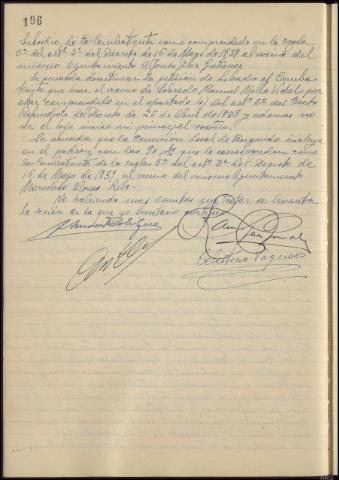 196
Subsidio de Ex-Combatiente como comprendido en la regla
5ª del artº 3º del Decreto de 16 de Mayo de 1939 al vecino del
mismo Ayuntamiento Alfonso Diaz
Se acuerda desestimar la petición de Subsidio al Comba-
tiente que hace el vecino de Manuel Mella Vidal, por
estar comprendido en el apartado a) del artº 6º del Texto
Refundido del Decreto de 25 de Abril de 1938 y además no
ser el hijo único su principal sostén.
Se acuerda que la Comisión Local de incluya
en el padrón, con las pts que le corresponden como
Ex-Combatiente de la regla 5ª del artº 3º del Decreto de
16 de Mayo de 1939, al vecino del mismo Ayuntamiento
Marcelino
No habiendo mas asuntos que tratar se levanta
la sesión de la que yo Secretario certifico.
Celestino Vaquero